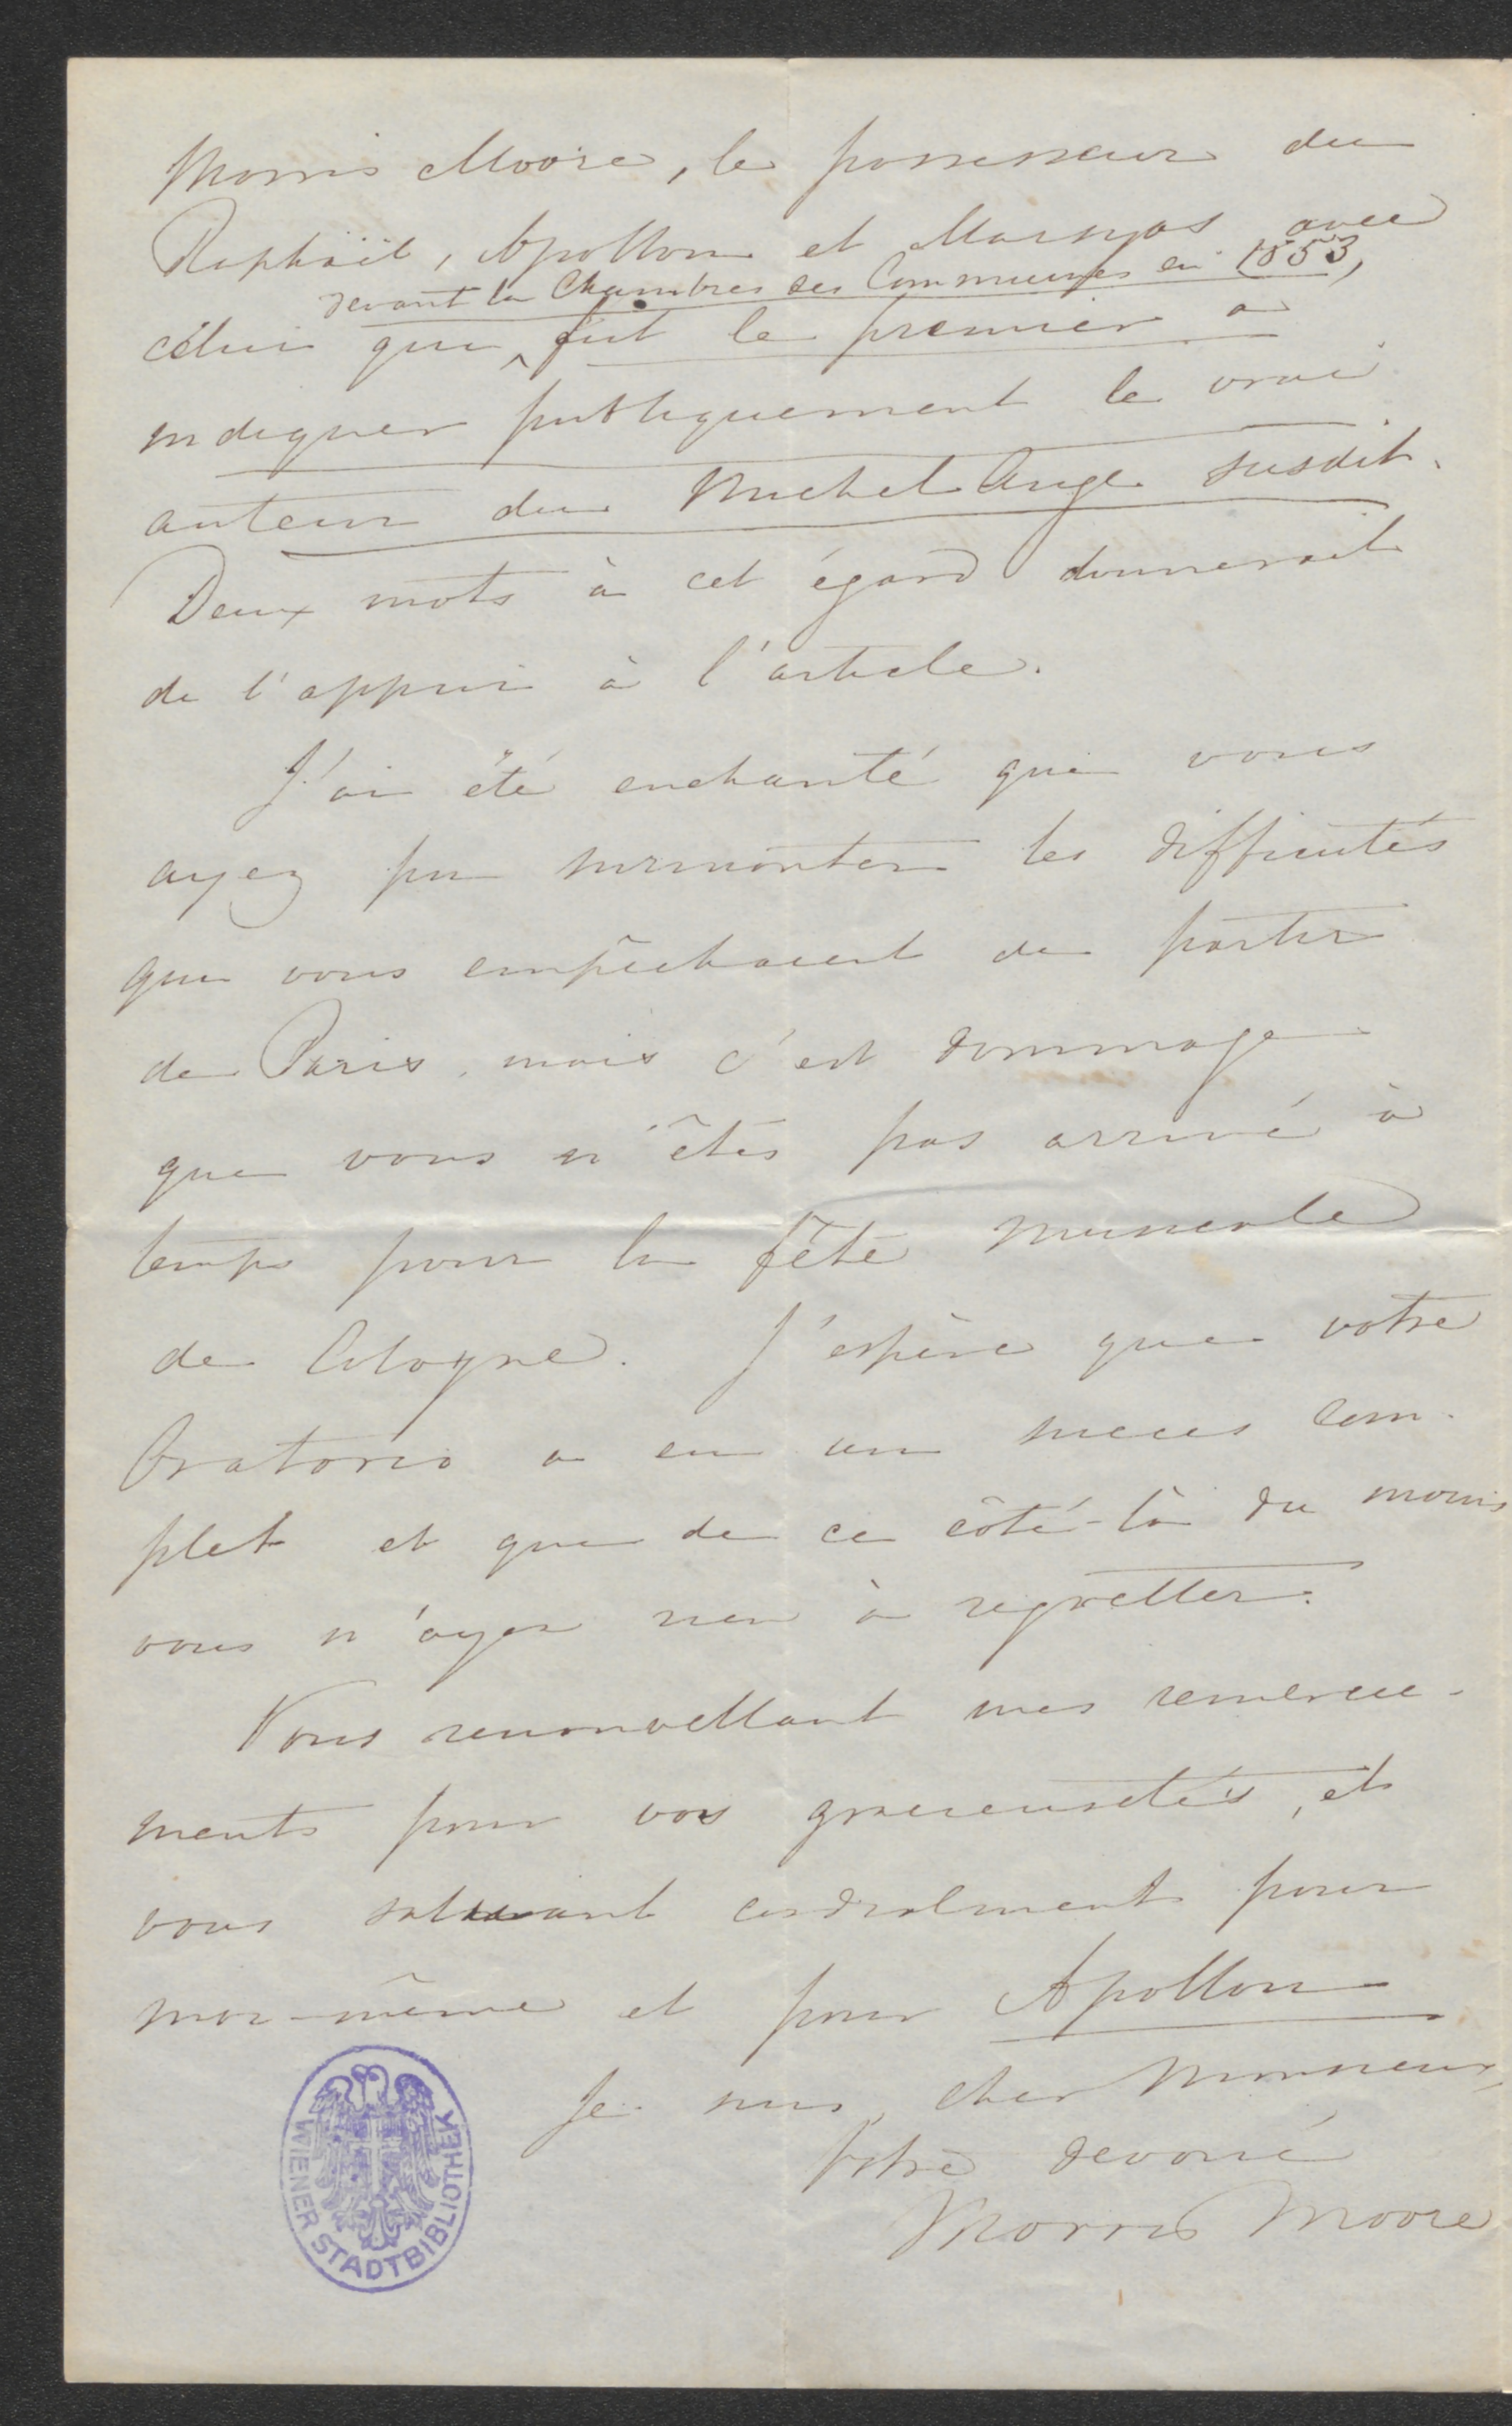 Morris Moore, le possesseur du
Raphaël, Apollon et Marsyas avec
devant la Chambre des Communes en 1853,
célui qui fut le premier a
indiquer publiquement le vrai
auteur du Michel Ange susdit.
Deux mots à cet égard donnerait
de l'appui à l'article.
J'ai été enchanté que vous
ayez pu surmonter les difficultés
qui vous empêchaient de partir
de Paris, mais c'est dommage
que vous n'êtes pas arrivé à
temps pour la fête musicale
de Cologne. J'espère que votre
Oratorio a eu un succès com-
plet et que de ce côté-là du moins
vous n'ayez rien à regretter.
Vous renouvellant mes remercie-
ments pour vos gracieusetés, et
vous saluant cordialment pour
moi-même et pour Apollon
Je suis, cher Monsieur,
Votre devoué
Morris Moore
WIENER STADTBIBLIOTHEK